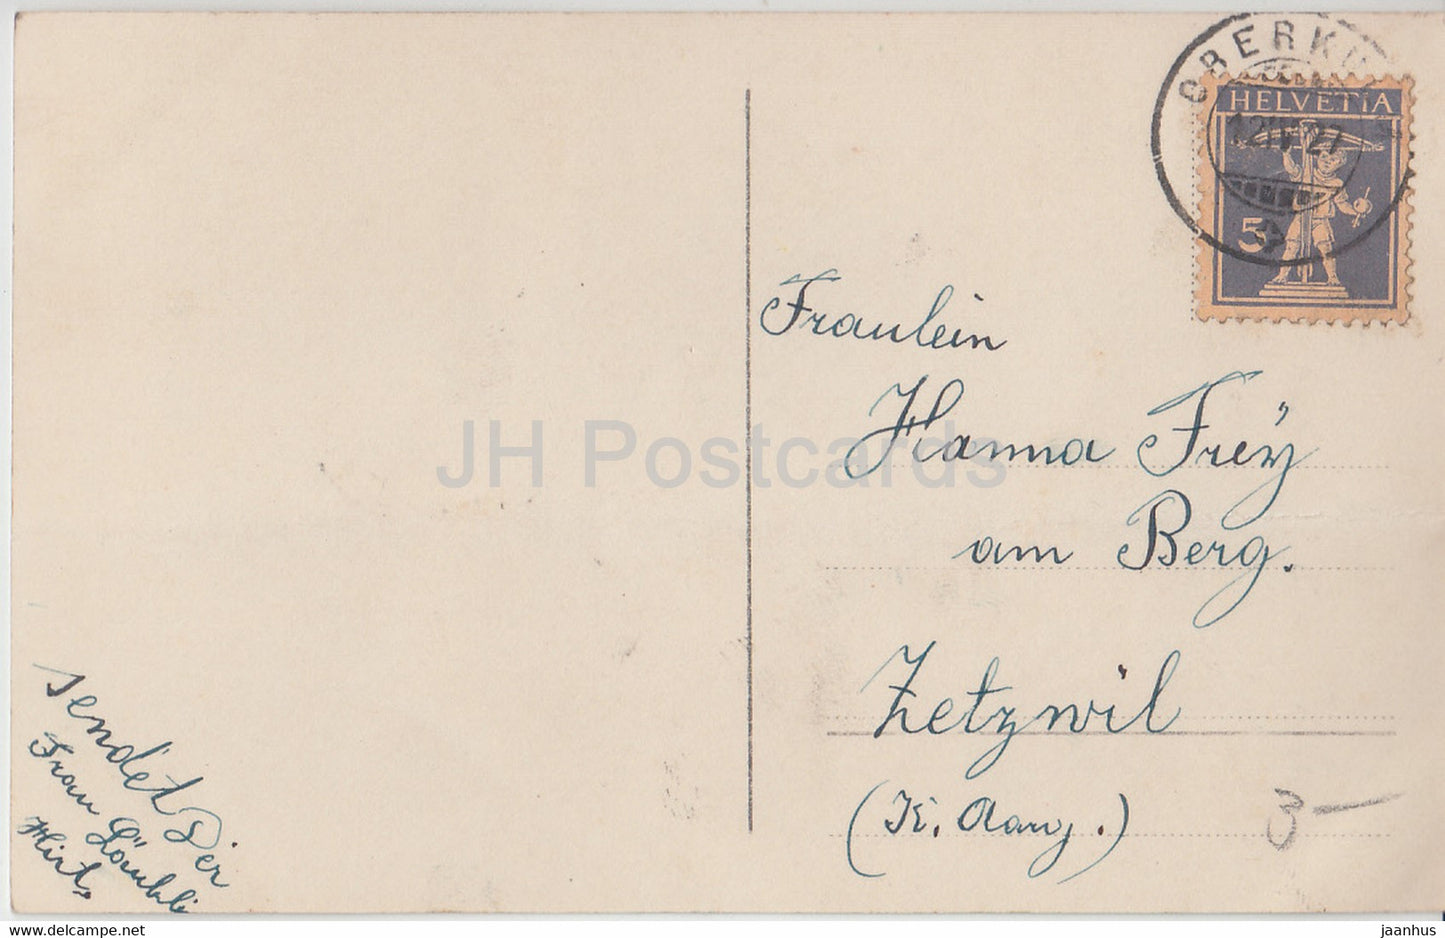 OBERKU
12 IV 27
HELVETIA
5
Fraulein
Hanna Frëy
am Berg.
Zetzwil
(Kt. Aarg.)
3 —
sendet Dir
Frau
Hirt
JH Postcards
www.delcampe.net
jaanhus